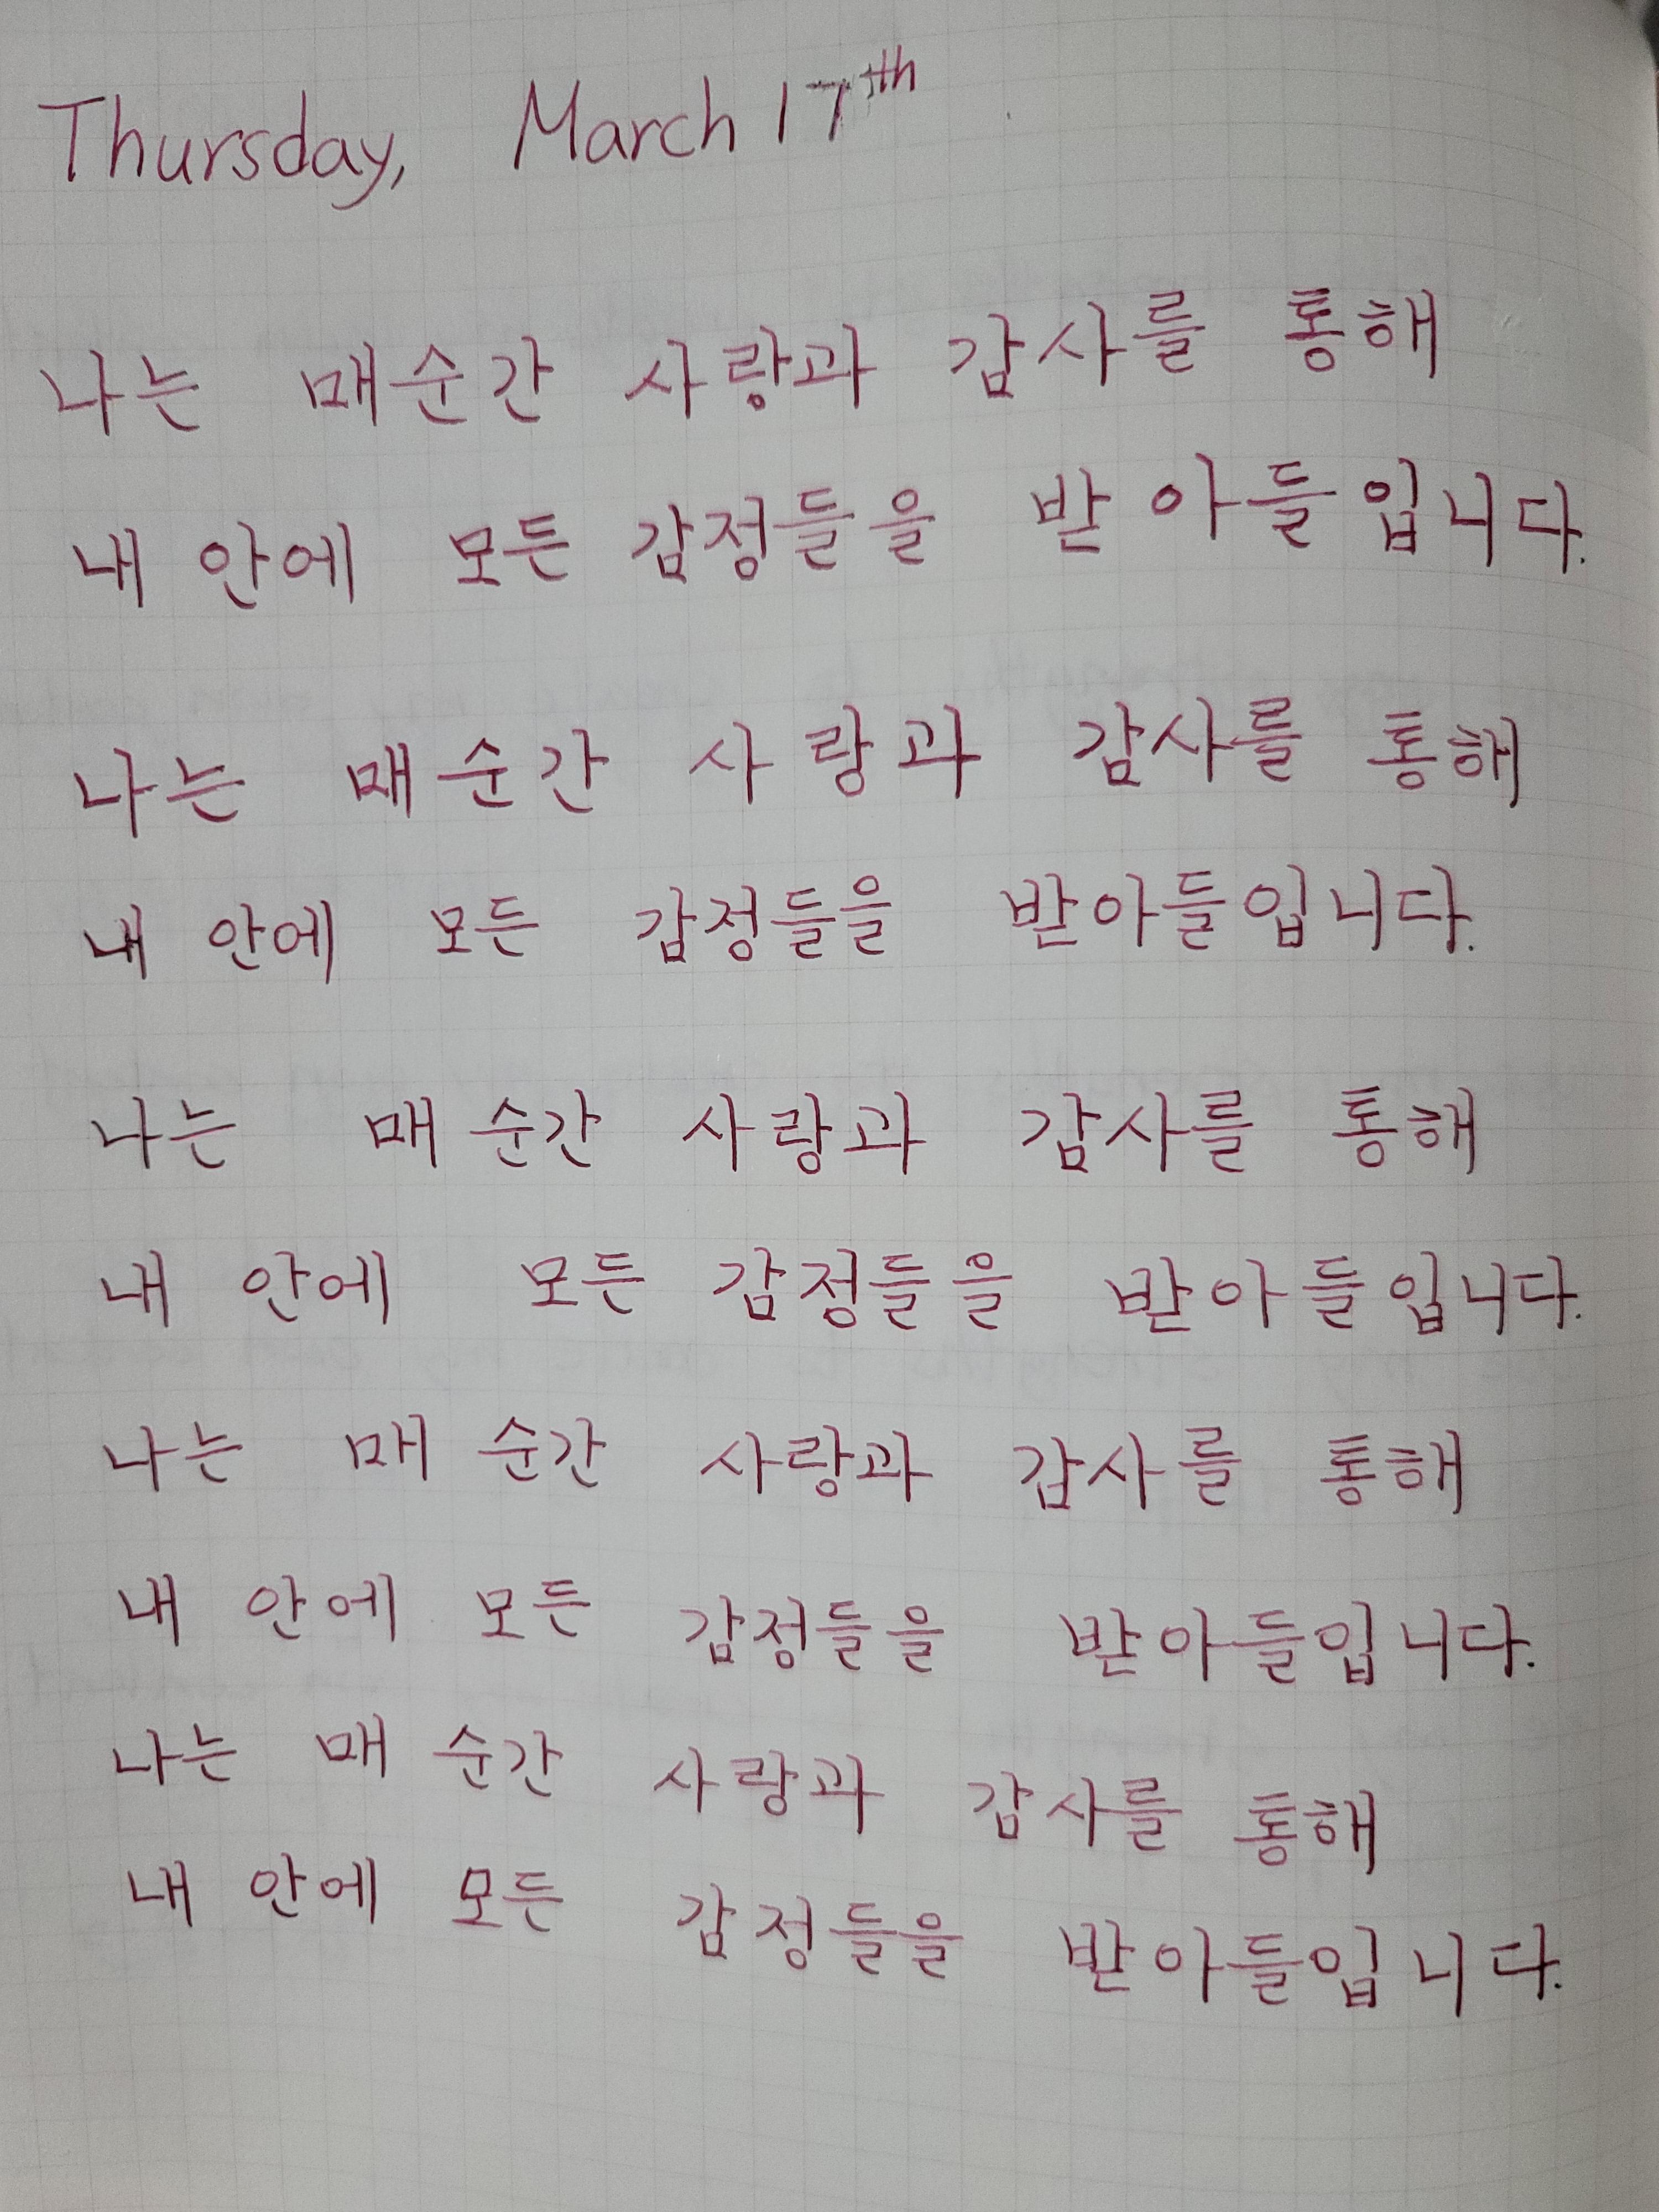 Thursday, March 17th
나는 매순간 사랑과 감사를 통해
내 안에 모든 감정들을 받아들입니다.
나는 매순간 사랑과 감사를 통해
내 안에 모든 감정들을 받아들입니다.
나는 매 순간 사랑과 감사를 통해
내 안에 모든 감정들을 받아들입니다.
나는 매 순간 사랑과 감사를 통해
내 안에 모든 감정들을 받아들입니다.
나는 매 순간 사랑과 감사를 통해
내 안에 모든 감정들을 받아들입니다.